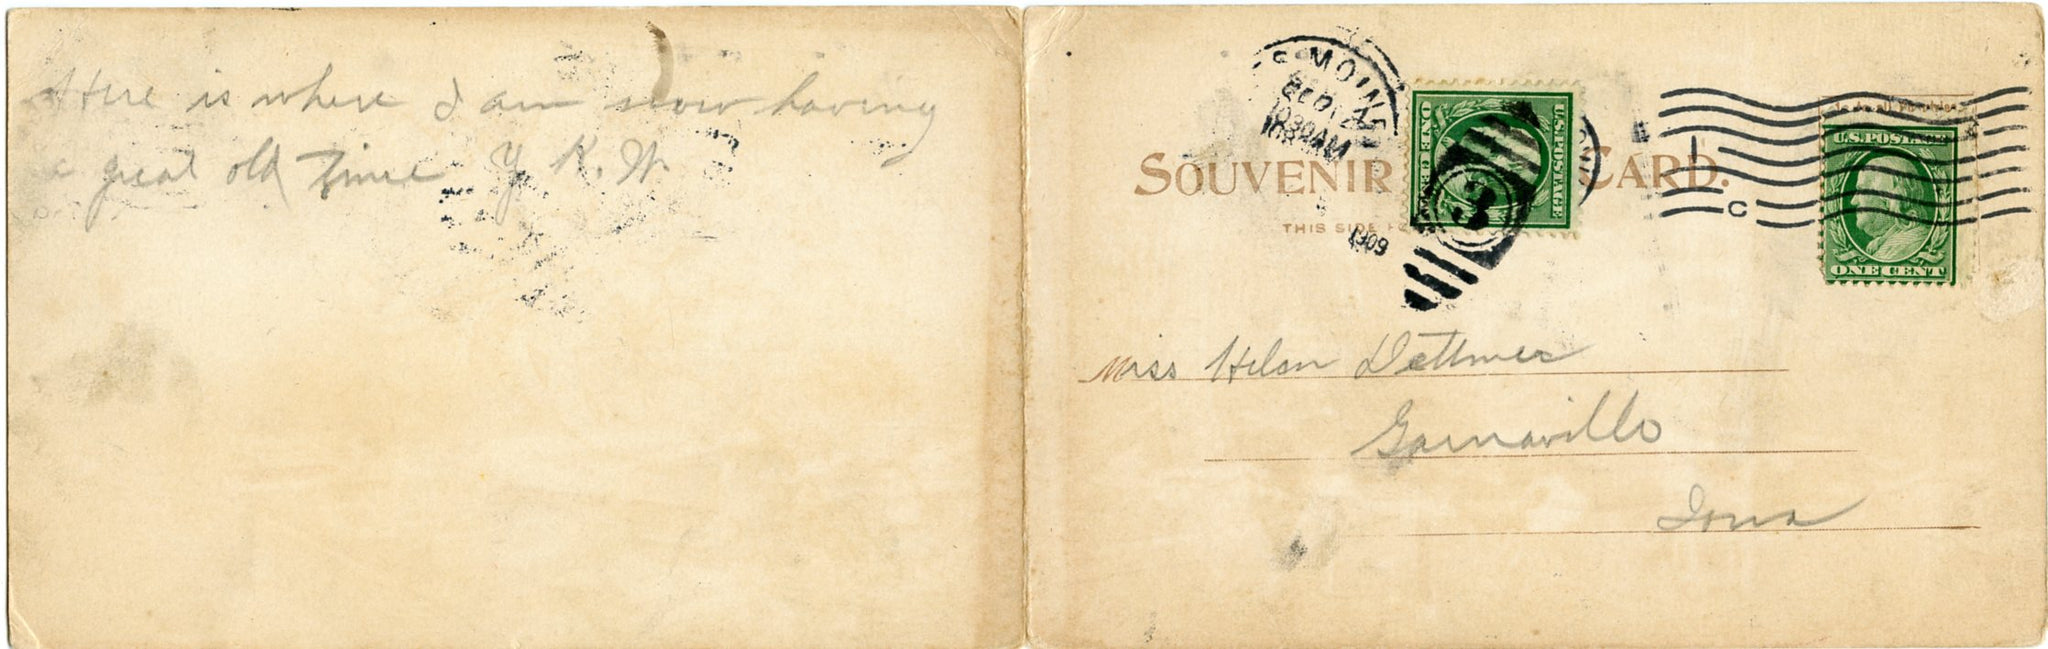 Here is where I am now having
a great old time Y. K. W.
S MOINES
10 30 AM
1909
3
U.S. POSTAGE
ONE CENT
C
U.S. POSTAGE
ONE CENT
SOUVENIR CARD.
THIS SIDE
Miss Helen Dettmer
Garnavillo
Iowa